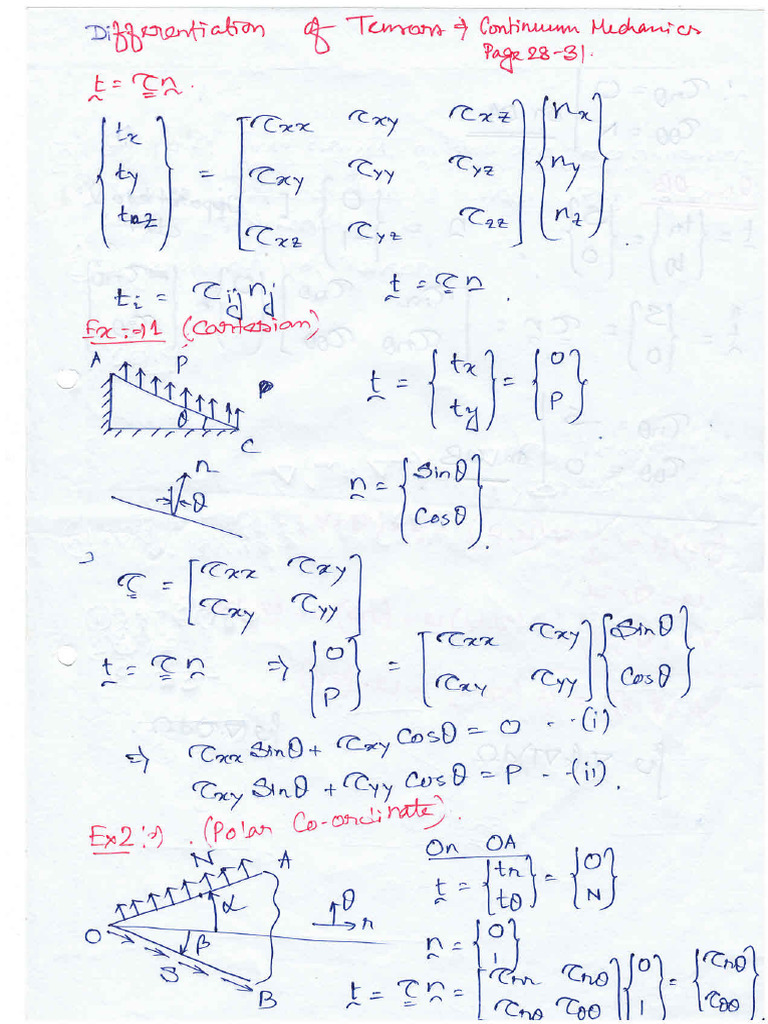 Differentiation of Tensors → Continuum Mechanics
Page 28-31.
t = τ n.
{tx ty tz} = [τxx τxy τxz; τxy τyy τyz; τxz τyz τzz] {nx ny nz}.
ti = τij nj   t = τ n.
Ex:→1 (Cartesian)
A P P
θ C
t = {tx ty} = {0 P}.
n
θ
n = {Sinθ Cosθ}.
τ = [τxx τxy; τxy τyy]
t = τ n ⇒ {0 P} = [τxx τxy; τxy τyy] {Sinθ Cosθ}
⇒ τxx Sinθ + τxy Cosθ = 0 - -(i)
τxy Sinθ + τyy Cosθ = P - -(ii).
Ex2:→ . (Polar Co-ordinate).
N A α θ r
O β S B
On OA
t = {tr tθ} = {0 N}
n = {0 1}
t = τ n = [τrr τrθ; τrθ τθθ] {0 1} = {τrθ τθθ}